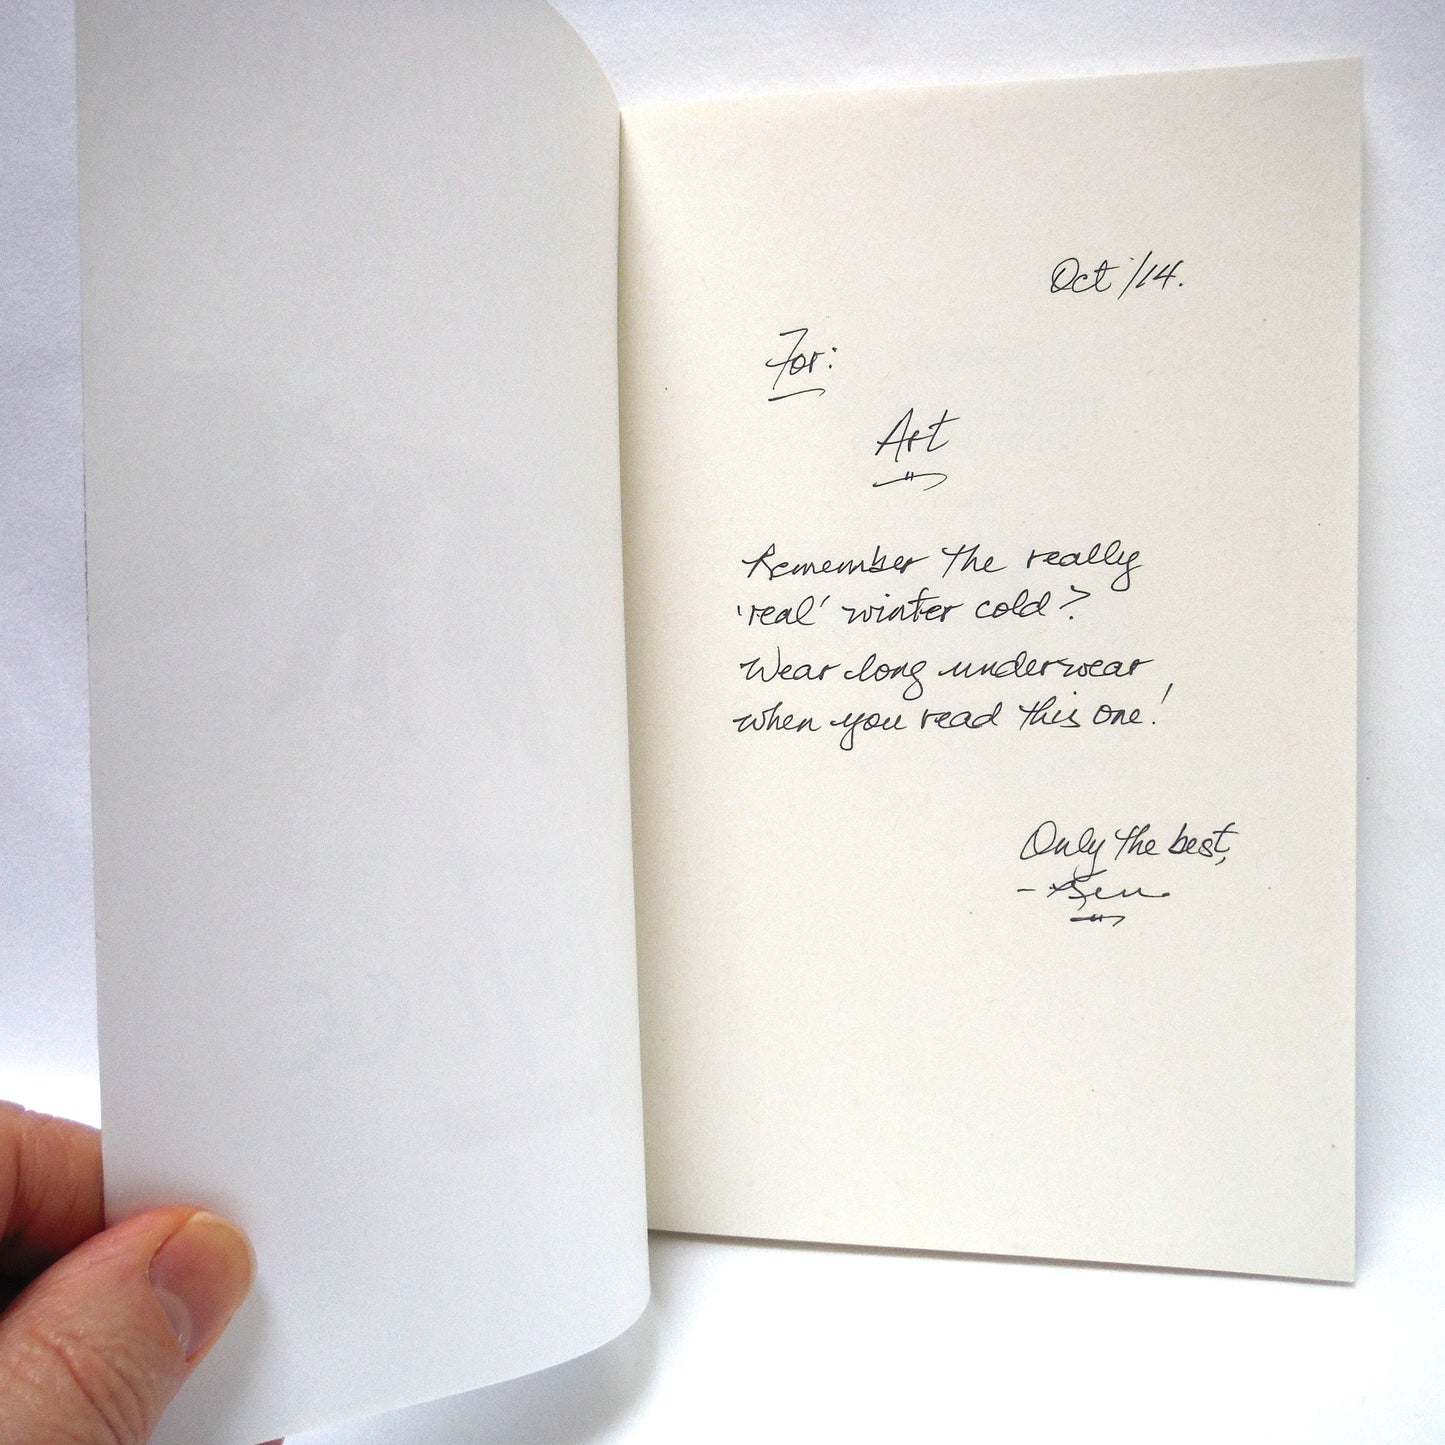 Oct '/14.
For:
Art
Remember the really
'real' winter cold?
Wear long underwear
when you read this one!
Only the best,
- Ben